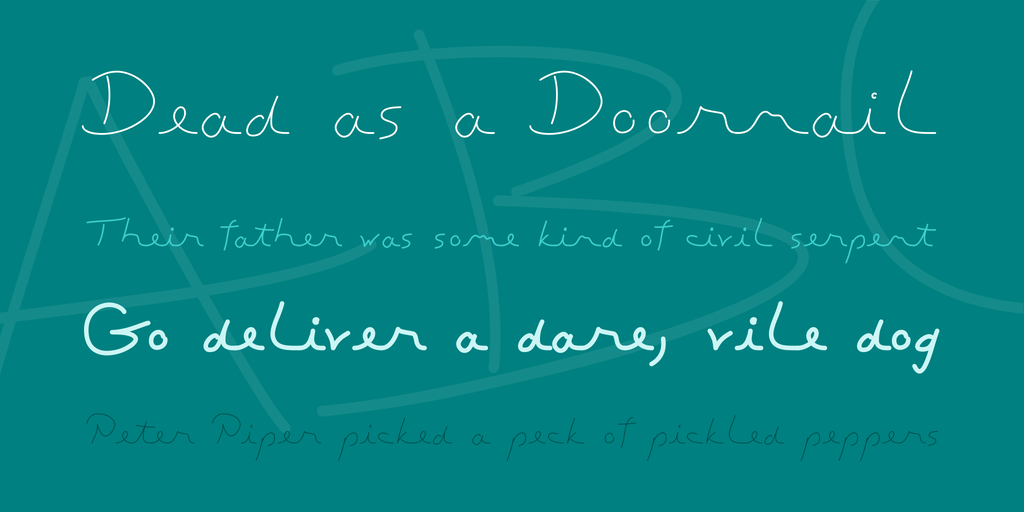 ABC
Dead as a Doornail
Their father was some kind of civil serpent
Go deliver a dare, vile dog
Peter Piper picked a peck of pickled peppers